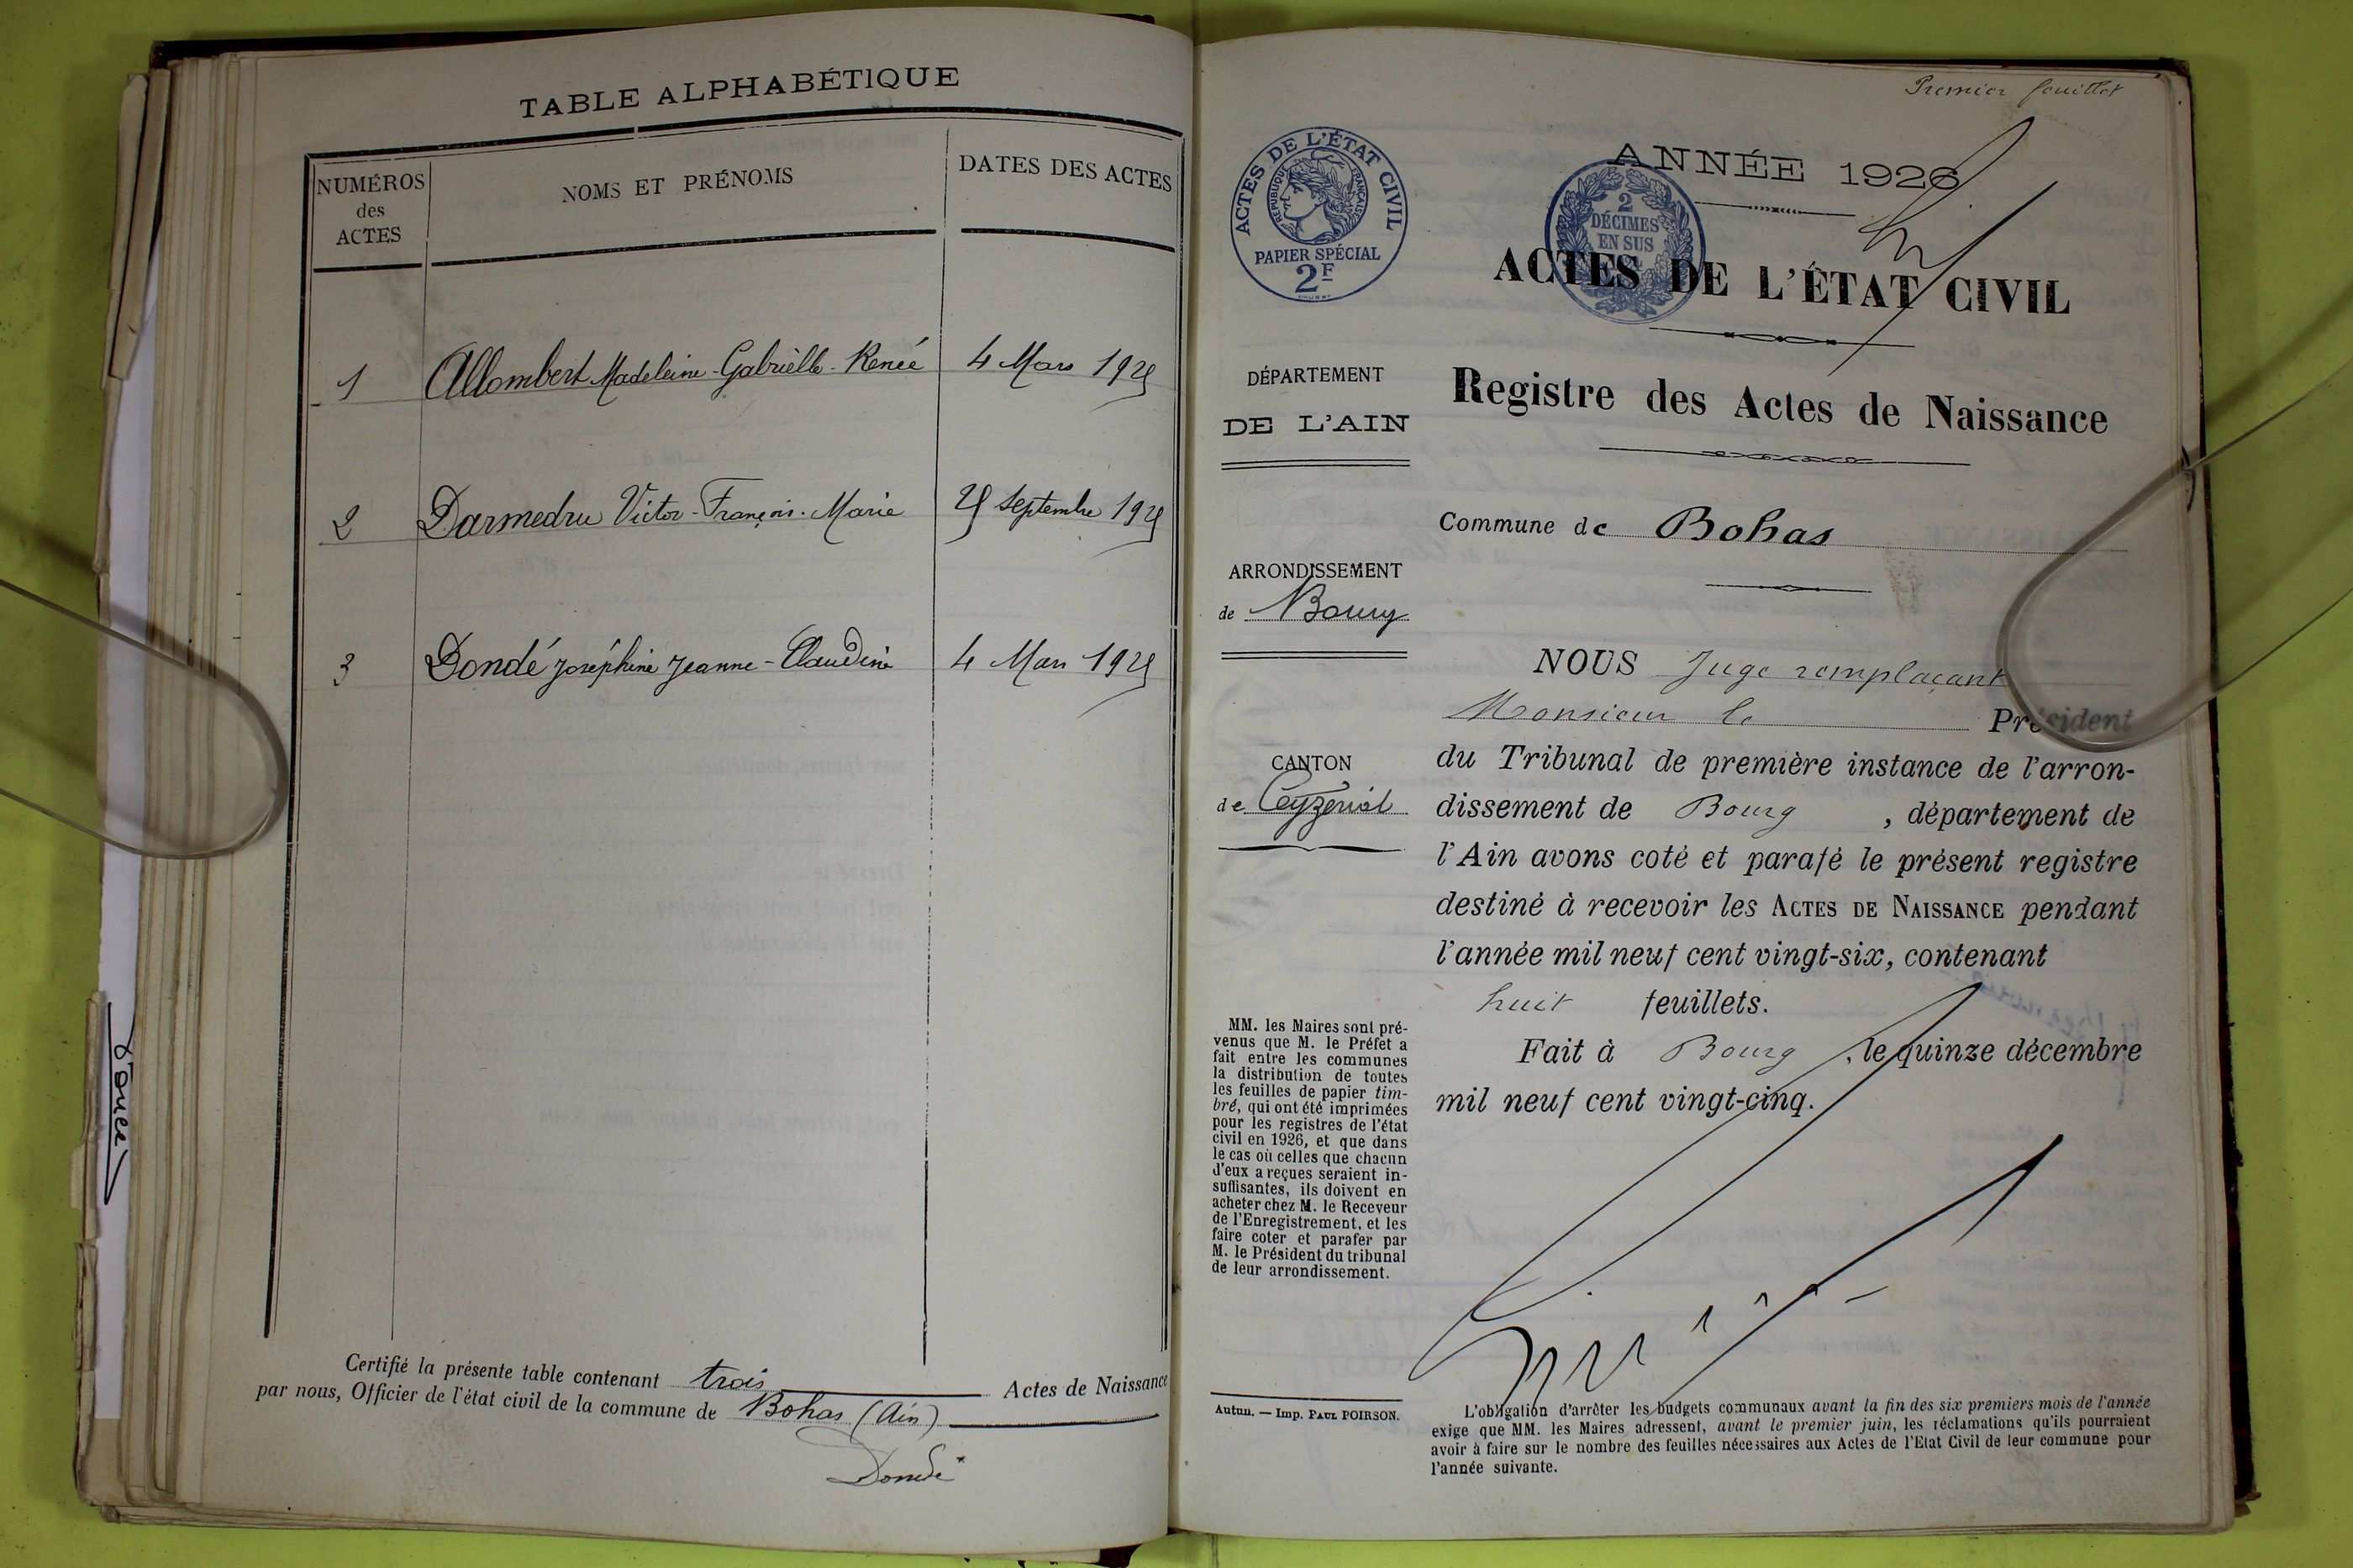 TABLE ALPHABÉTIQUE
NUMÉROS
des
ACTES
NOMS ET PRÉNOMS
DATES DES ACTES
1 Allombert Madeleine-Gabrielle-Renée 4 Mars 1925
2 Darmedru Victor-François-Marie 25 septembre 1925
3 Dondé Joséphine Jeanne-Claudine 4 Mars 1925
Certifié la présente table contenant trois Actes de Naissance
par nous, Officier de l'état civil de la commune de Bohas (Ain)
Dondé
Premier feuillet
ACTES DE L'ÉTAT CIVIL
RÉPUBLIQUE FRANÇAISE
PAPIER SPÉCIAL
2F
2
DÉCIMES
EN SUS
ANNÉE 1926
ACTES DE L'ÉTAT CIVIL
Registre des Actes de Naissance
DÉPARTEMENT
DE L'AIN
ARRONDISSEMENT
de Bourg
CANTON
de Ceyzériat
MM. les Maires sont pré-
venus que M. le Préfet a
fait entre les communes
la distribution de toutes
les feuilles de papier tim-
bré, qui ont été imprimées
pour les registres de l'état
civil en 1926, et que dans
le cas où celles que chacun
d'eux a reçues seraient in-
suffisantes, ils doivent en
acheter chez M. le Receveur
de l'Enregistrement, et les
faire coter et parafer par
M. le Président du tribunal
de leur arrondissement.
Autun. — Imp. PAUL POIRSON.
Commune de Bohas
NOUS Juge remplaçant
Monsieur le Président
du Tribunal de première instance de l'arron-
dissement de Bourg, département de
l'Ain avons coté et parafé le présent registre
destiné à recevoir les ACTES DE NAISSANCE pendant
l'année mil neuf cent vingt-six, contenant
huit feuillets.
Fait à Bourg, le quinze décembre
mil neuf cent vingt-cinq.
L'obligation d'arrêter les budgets communaux avant la fin des six premiers mois de l'année
exige que MM. les Maires adressent, avant le premier juin, les réclamations qu'ils pourraient
avoir à faire sur le nombre des feuilles nécessaires aux Actes de l'Etat Civil de leur commune pour
l'année suivante.